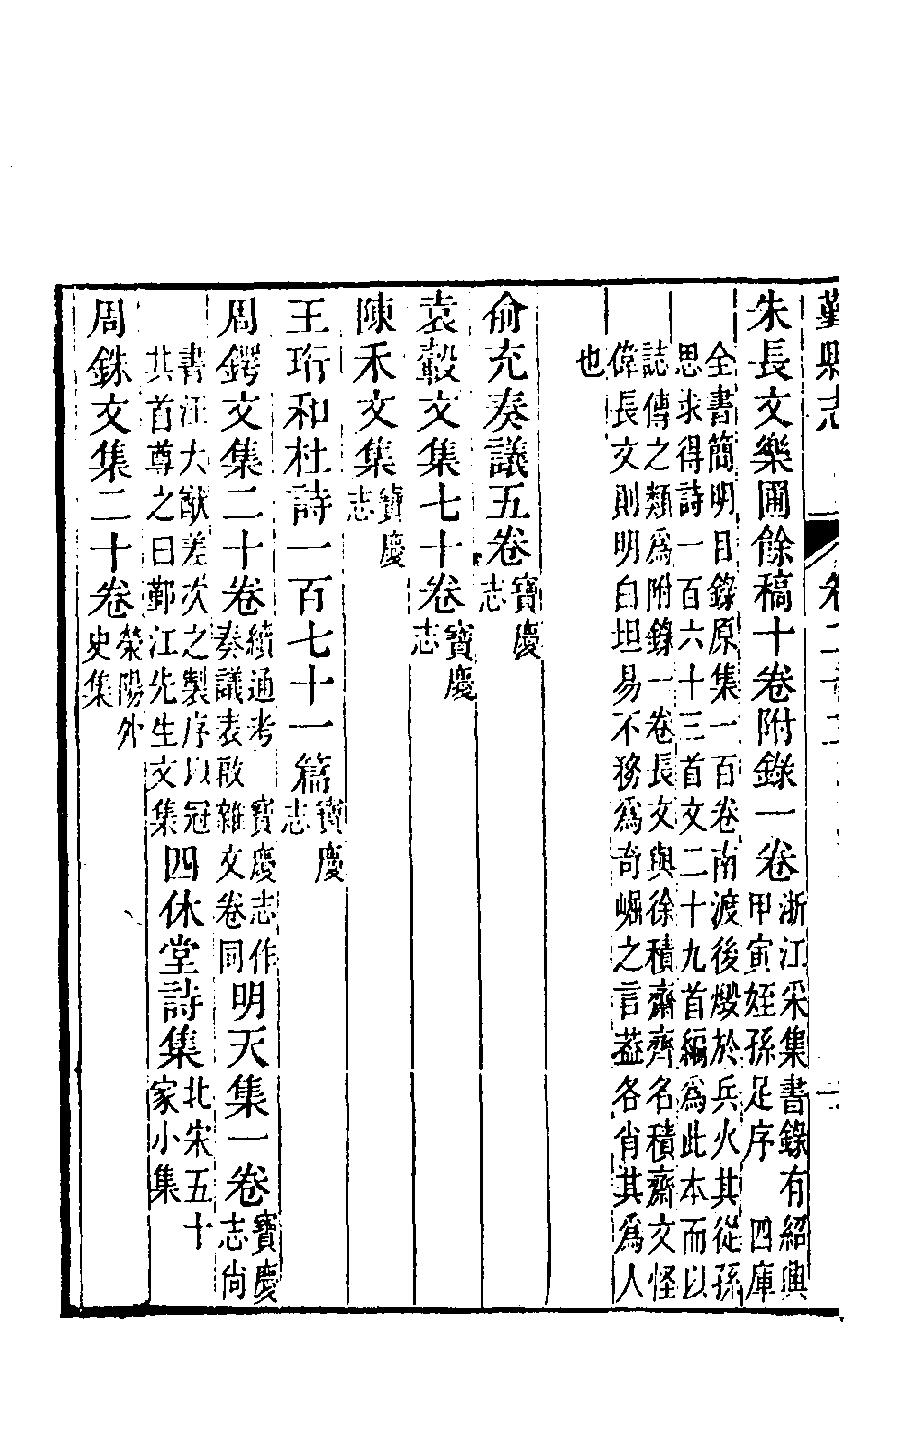 鄞縣志
朱長文樂圃餘稿十卷附錄一卷 浙江采集書錄有紹興
甲寅姪孫足序 四庫
全書簡明目錄原集一百卷南渡後燬於兵火其從孫
思求得詩一百六十三首文二十九首編爲此本而以
誌傳之類爲附錄一卷長文與徐積齋齊名積齋文怪
偉長文則明白坦易不務爲奇崛之言葢各肖其爲人
也
俞充奏議五卷 寶慶
志
袁轂文集七十卷 寶慶
志
陳禾文集 寶慶
志
王珩和杜詩一百七十一篇 寶慶
志
周鍔文集二十卷 續通考 寶慶志作
奏議表啟雜文卷同 明天集一卷 寶慶
志尚
書汪大猷差次之製序以冠
其首尊之曰鄞江先生文集 四休堂詩集 北宋五十
家小集
周銖文集二十卷 滎陽外
史集